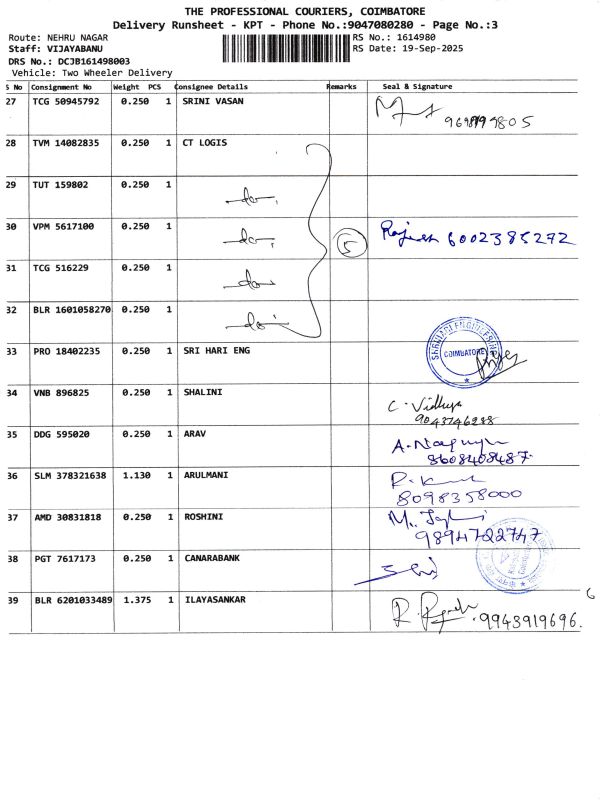 THE PROFESSIONAL COURIERS, COIMBATORE
Delivery Runsheet - KPT - Phone No.:9047080280 - Page No.:3
Route: NEHRU NAGAR RS No.: 1614980
Staff: VIJAYABANU RS Date: 19-Sep-2025
DRS No.: DCJB161498003
Vehicle: Two Wheeler Delivery
S No Consignment No Weight PCS Consignee Details Remarks Seal & Signature
27 TCG 50945792 0.250 1 SRINI VASAN
28 TVM 14082835 0.250 1 CT LOGIS
29 TUT 159802 0.250 1 do
30 VPM 5617100 0.250 1 do 5 Rajesh 6002385272
31 TCG 516229 0.250 1 do
32 BLR 1601058270 0.250 1 do
33 PRO 18402235 0.250 1 SRI HARI ENG COIMBATORE
34 VNB 896825 0.250 1 SHALINI C. Vidhya
9043746288
35 DDG 595020 0.250 1 ARAV
8608408487
36 SLM 378321638 1.130 1 ARULMANI
8098358000
37 AMD 30831818 0.250 1 ROSHINI
9894722747
38 PGT 7617173 0.250 1 CANARABANK
39 BLR 6201033489 1.375 1 ILAYASANKAR 9943919696.
6